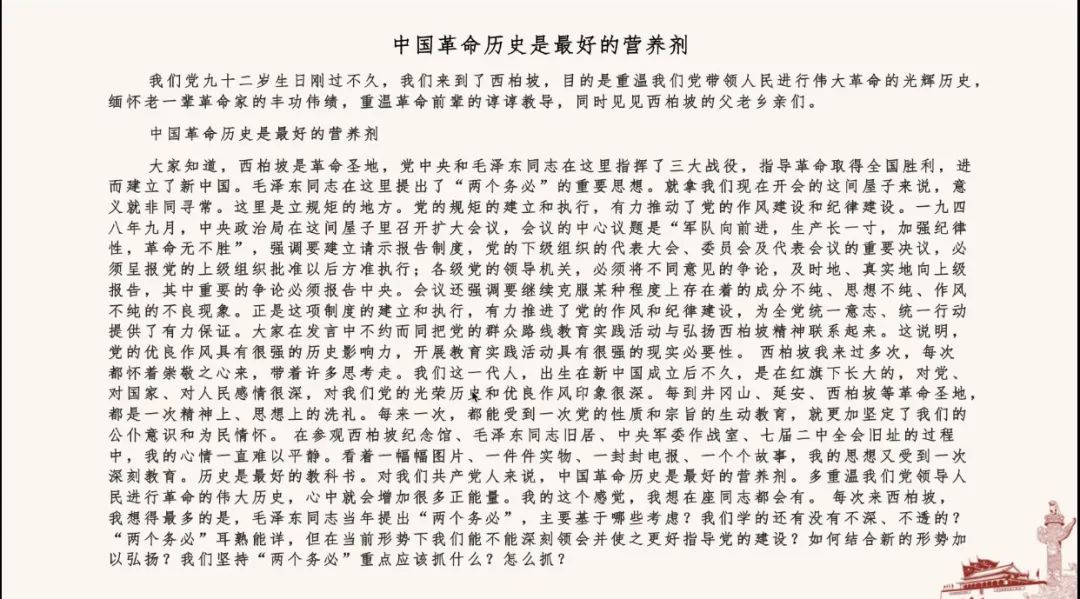 中国革命历史是最好的营养剂
我们党九十二岁生日刚过不久，我们来到了西柏坡，目的是重温我们党带领人民进行伟大革命的光辉历史，
缅怀老一辈革命家的丰功伟绩，重温革命前辈的谆谆教导，同时见见西柏坡的父老乡亲们。
中国革命历史是最好的营养剂
大家知道，西柏坡是革命圣地，党中央和毛泽东同志在这里指挥了三大战役，指导革命取得全国胜利，进
而建立了新中国。毛泽东同志在这里提出了“两个务必”的重要思想。就拿我们现在开会的这间屋子来说，意
义就非同寻常。这里是立规矩的地方。党的规矩的建立和执行，有力推动了党的作风建设和纪律建设。一九四
八年九月，中央政治局在这间屋子里召开扩大会议，会议的中心议题是“军队向前进，生产长一寸，加强纪律
性，革命无不胜”，强调要建立请示报告制度，党的下级组织的代表大会、委员会及代表会议的重要决议，必
须呈报党的上级组织批准以后方准执行；各级党的领导机关，必须将不同意见的争论，及时地、真实地向上级
报告，其中重要的争论必须报告中央。会议还强调要继续克服某种程度上存在着的成分不纯、思想不纯、作风
不纯的不良现象。正是这项制度的建立和执行，有力推进了党的作风和纪律建设，为全党统一意志、统一行动
提供了有力保证。大家在发言中不约而同把党的群众路线教育实践活动与弘扬西柏坡精神联系起来。这说明，
党的优良作风具有很强的历史影响力，开展教育实践活动具有很强的现实必要性。 西柏坡我来过多次，每次
都怀着崇敬之心来，带着许多思考走。我们这一代人，出生在新中国成立后不久，是在红旗下长大的，对党、
对国家、对人民感情很深，对我们党的光荣历史和优良作风印象很深。每到井冈山、延安、西柏坡等革命圣地，
都是一次精神上、思想上的洗礼。每来一次，都能受到一次党的性质和宗旨的生动教育，就更加坚定了我们的
公仆意识和为民情怀。 在参观西柏坡纪念馆、毛泽东同志旧居、中央军委作战室、七届二中全会旧址的过程
中，我的心情一直难以平静。看着一幅幅图片、一件件实物、一封封电报、一个个故事，我的思想又受到一次
深刻教育。历史是最好的教科书。对我们共产党人来说，中国革命历史是最好的营养剂。多重温我们党领导人
民进行革命的伟大历史，心中就会增加很多正能量。我的这个感觉，我想在座同志都会有。 每次来西柏坡，
我想得最多的是，毛泽东同志当年提出“两个务必”，主要基于哪些考虑？我们学的还有没有不深、不透的？
“两个务必”耳熟能详，但在当前形势下我们能不能深刻领会并使之更好指导党的建设？如何结合新的形势加
以弘扬？我们坚持“两个务必”重点应该抓什么？怎么抓？